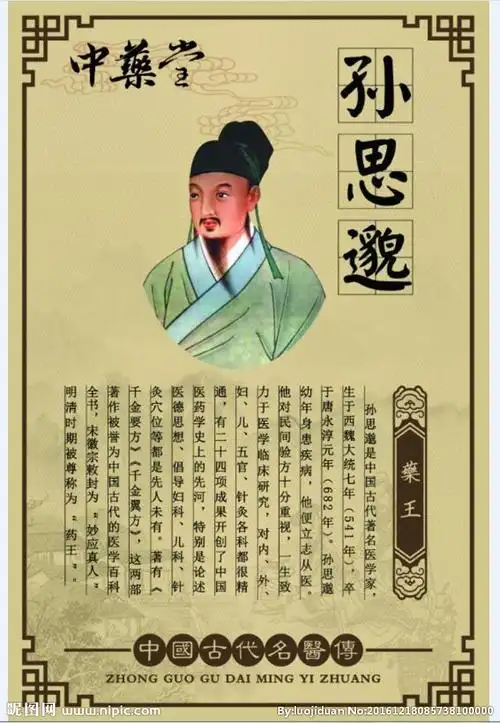 中藥堂
孙思邈
藥王
孙思邈是中国古代著名医学家，
生于西魏大统七年（541年），卒
于唐永淳元年（682年）。孙思邈
幼年身患疾病，他便立志从医。
他对民间验方十分重视，一生致
力于医学临床研究，对内、外、
妇、儿、五官、针灸各科都很精
通，有二十四项成果开创了中国
医药学史上的先河，特别是论述
医德思想、倡导妇科、儿科、针
灸穴位等都是先人未有。著有《
千金要方》《千金翼方》，这两部
著作被誉为中国古代的医学百科
全书，宋徽宗敕封为“妙应真人”
明清时期被尊称为“药王”。
中國古代名醫傳
ZHONG GUO GU DAI MING YI ZHUANG
昵图网 www.nipic.com
By:luojiduan No:20161218085738100000